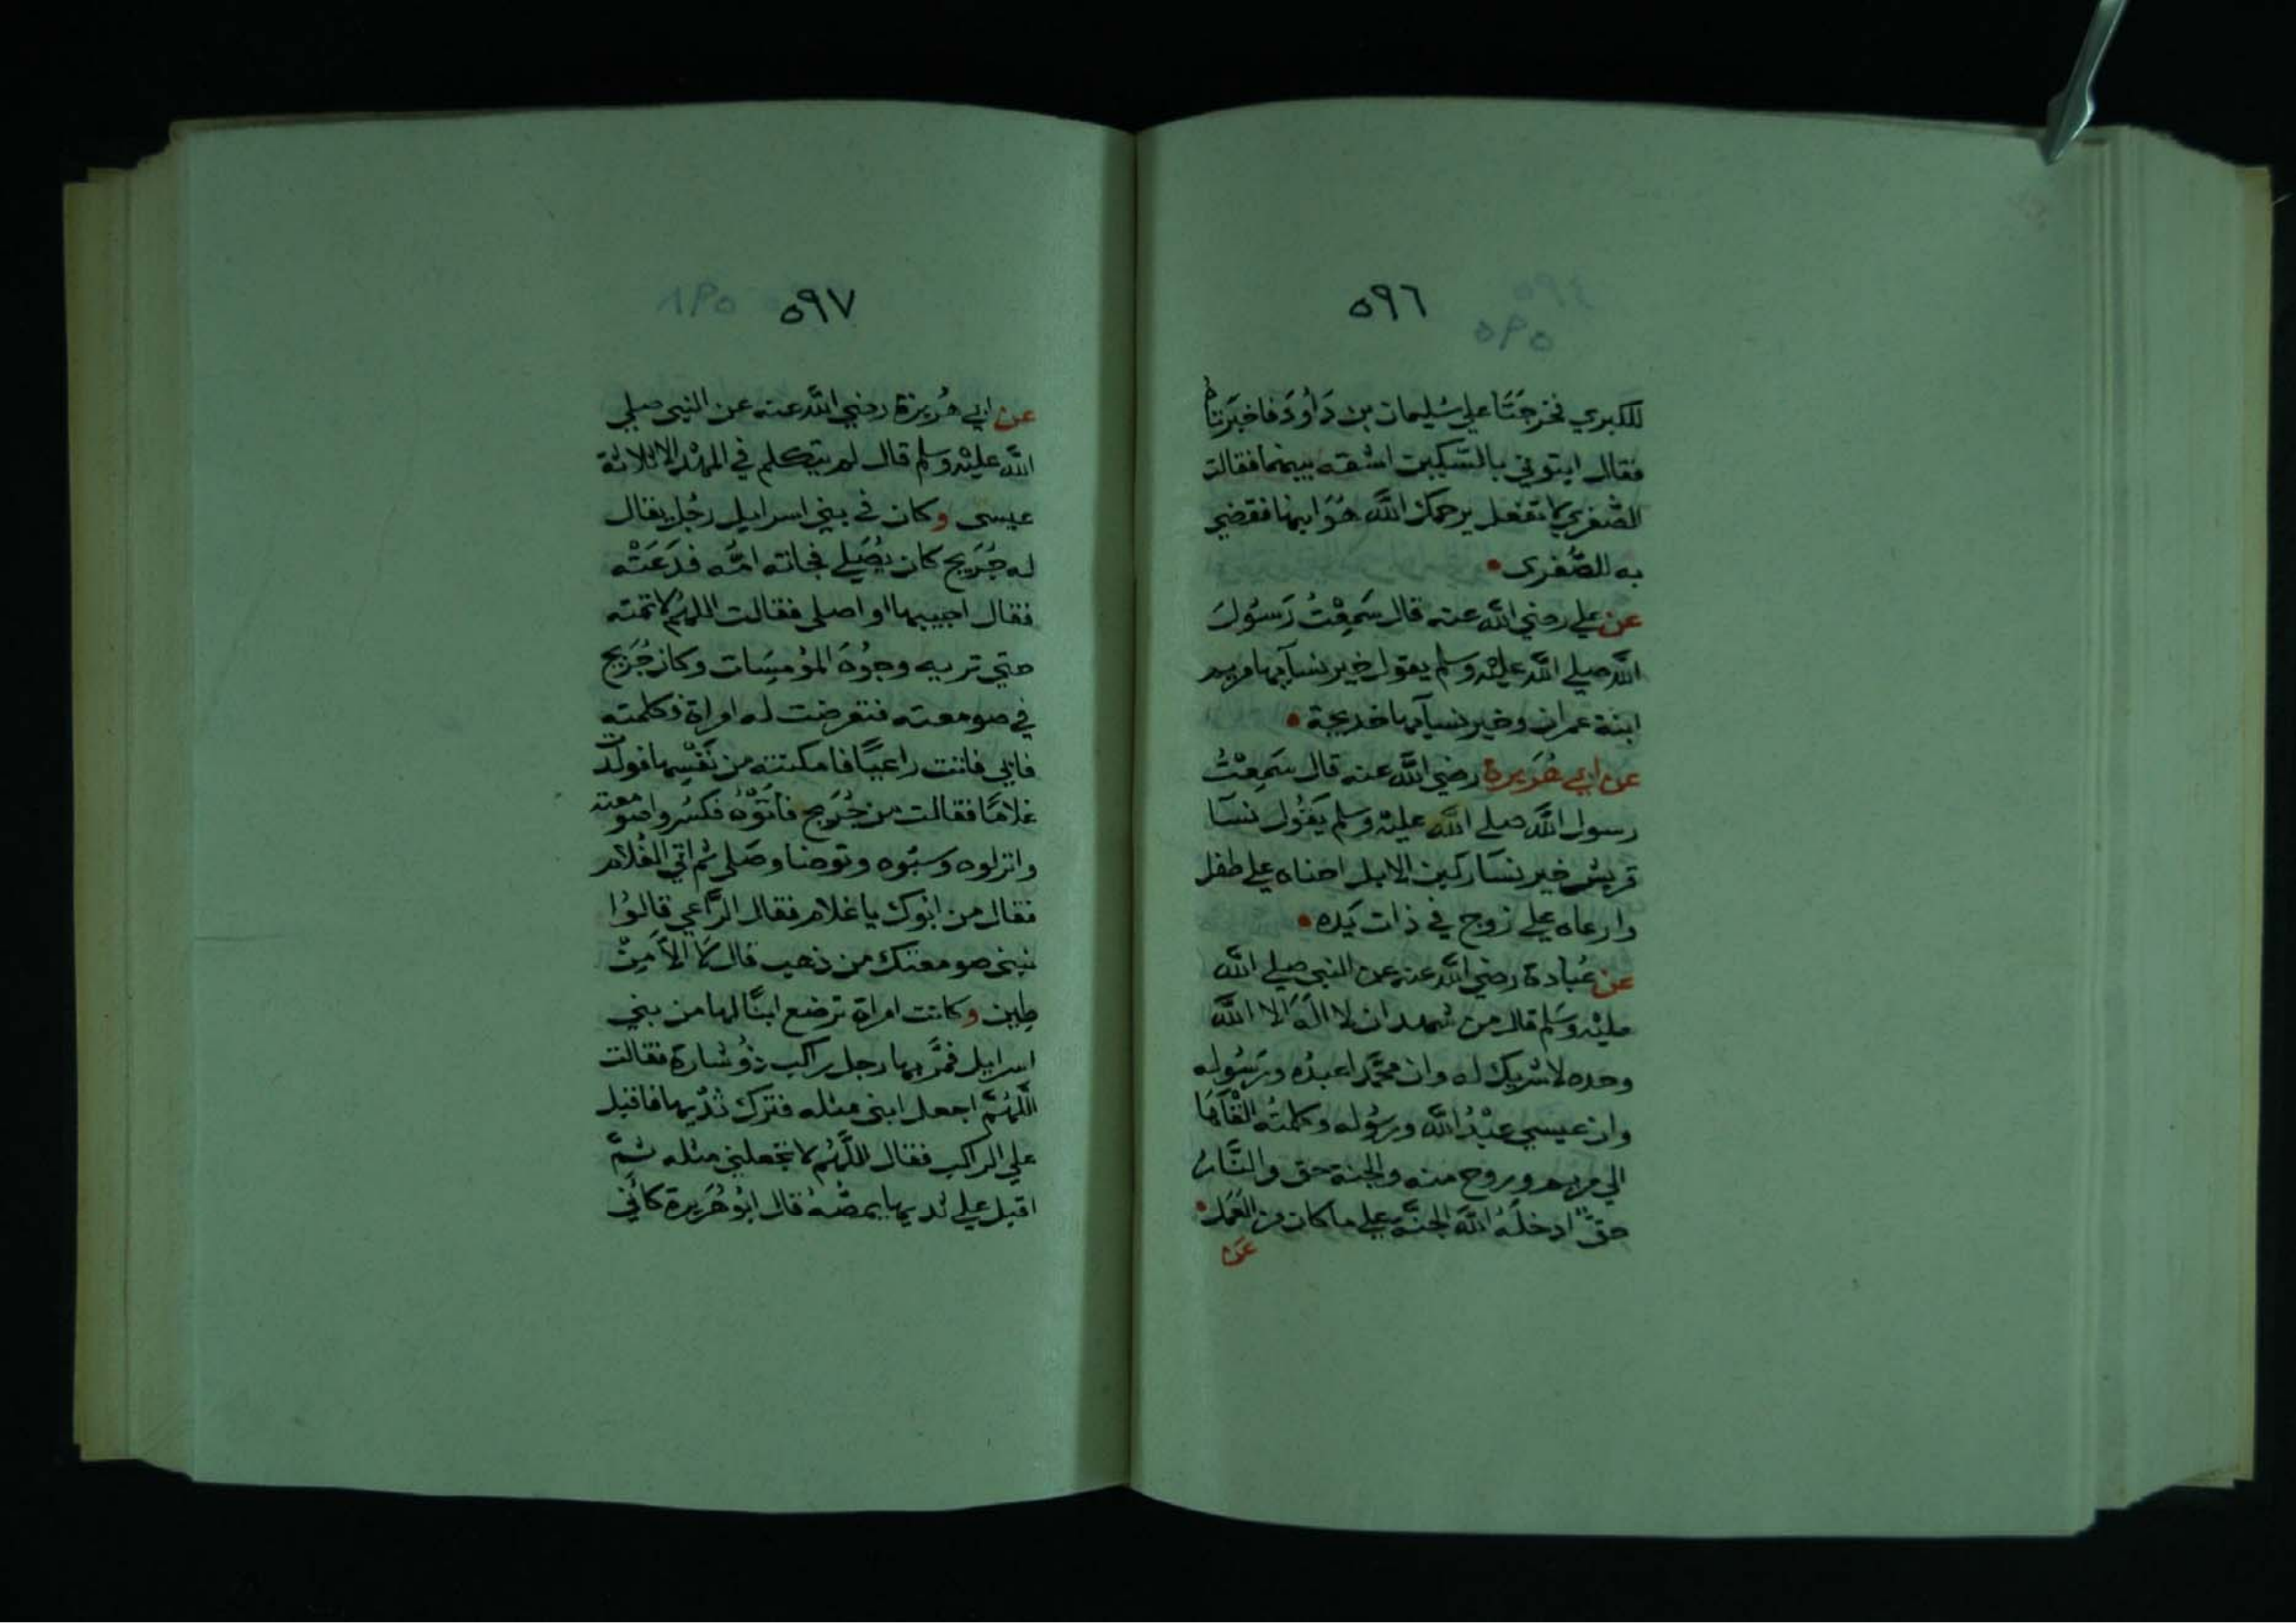 ٥٩٦
للكبري فخرجَتَا علي سُليمان بن دَاوُدَ فاخبَرتاهُ
فقال ايتوني بالسّكين اشقه بينهما فقالت
الصُّغري لا تفعل يرحمك اللَّه هُوَ ابنها فقضي
به للصُّغرى
عن علي رضي اللّه عنه قال سَمِعْتُ رَسوُلَ
اللّه صلي اللّه عليْه وسلم يقول خير نسآيها مريم
ابنة عمران وخير نسآيها خديجة
عن ابي هُرَيرة رضي اللّه عنه قال سَمِعْتُ
رسول اللّه صلي اللّه عليْه وسلم يَقُول نسَآ
قريش خير نسَآ ركبن الابل احناه علي طفل
وارعاه علي زوج في ذات يَده
عن عُبادة رضي اللّه عنه عن النبي صلي اللّه
عليْه وسَلم قال من شهد ان لا اله الا اللَّه
وحده لا شريك له وان محمَّدا عبدُه ورَسُوله
وان عيسي عبْدُ اللّه ورسُوله وكلمتُه القْاهَا
الي مريم وروح منه والجنة حق والنَّارُ
حقٌّ ادخلهُ اللّه الجنَّة علي ما كان من العَمَل
عن
٥٩٧
عن ابي هُريرة رضي اللّه عنه عن النبي صلي
اللّه عليْه وسلم قال لم يتكلم في المهْد الا ثلاثة
عيسى وكان في بني اسرايل رجُل يقال
له جُرَيج كان يُصَلي فجاته امُّه فدَعَتْه
فقال اجيبها او اصلي فقالت اللهُم لا تمته
حتي تريه وجُوُهَ المؤمِسَات وكان جُرَيج
في صومعته فتعرضت له امراة فكلمته
فابي فاتت راعيًا فامكنته من نَفْسِها فولدت
غلامًا فقالت من جُرَيج فاتَوْهُ فكسُروا صَومعته
وانزلوه وسبّوه وتوضا وصَلي ثم اتي الغُلام
فقال من ابوك يا غلام فقال الرَّاعي قالوُا
نبني صومعتك من ذهب قال لا الا مِنْ
طين وكانت امراة ترضع ابنًا لها من بني
اسرايل فمَرَّ بها رجل راكب ذوُ شارة فقالت
اللّهُمَّ اجعل ابنى مثله فترك ثدْيها فاقبل
علي الراكب فقال اللّهُم لا تجعلني مثله ثمَّ
اقبل علي ثديها يمصُّه قال ابُو هُرَيرة كانّي